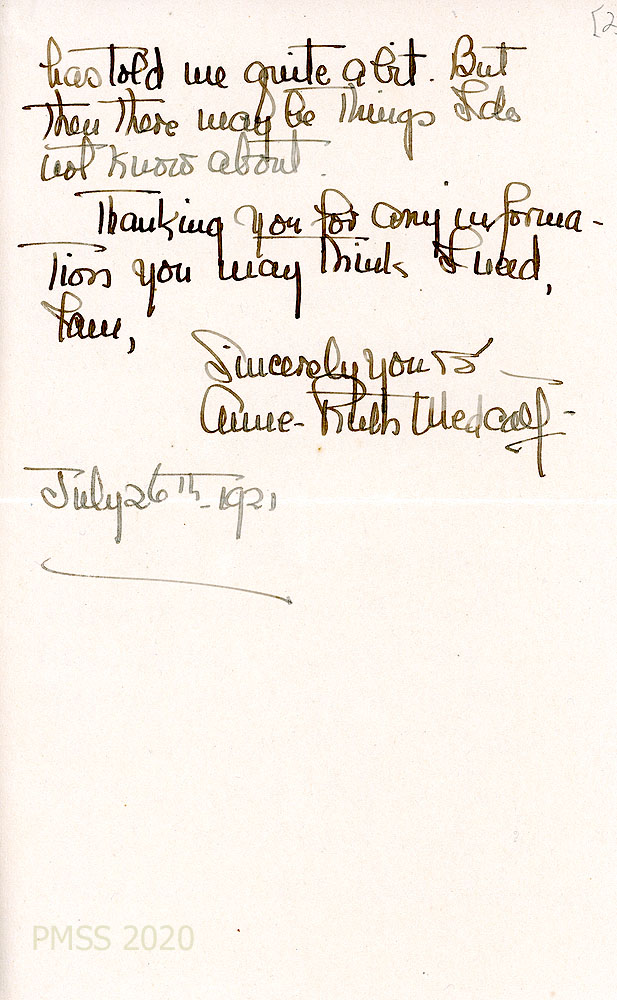 [2
has told me quite a bit. But
then there may be things I do
not know about.
Thanking you for any informa-
tion you may think I need,
I am,
Sincerely yours
Anne-Ruth Medcalf-
July 26th-1921
PMSS 2020